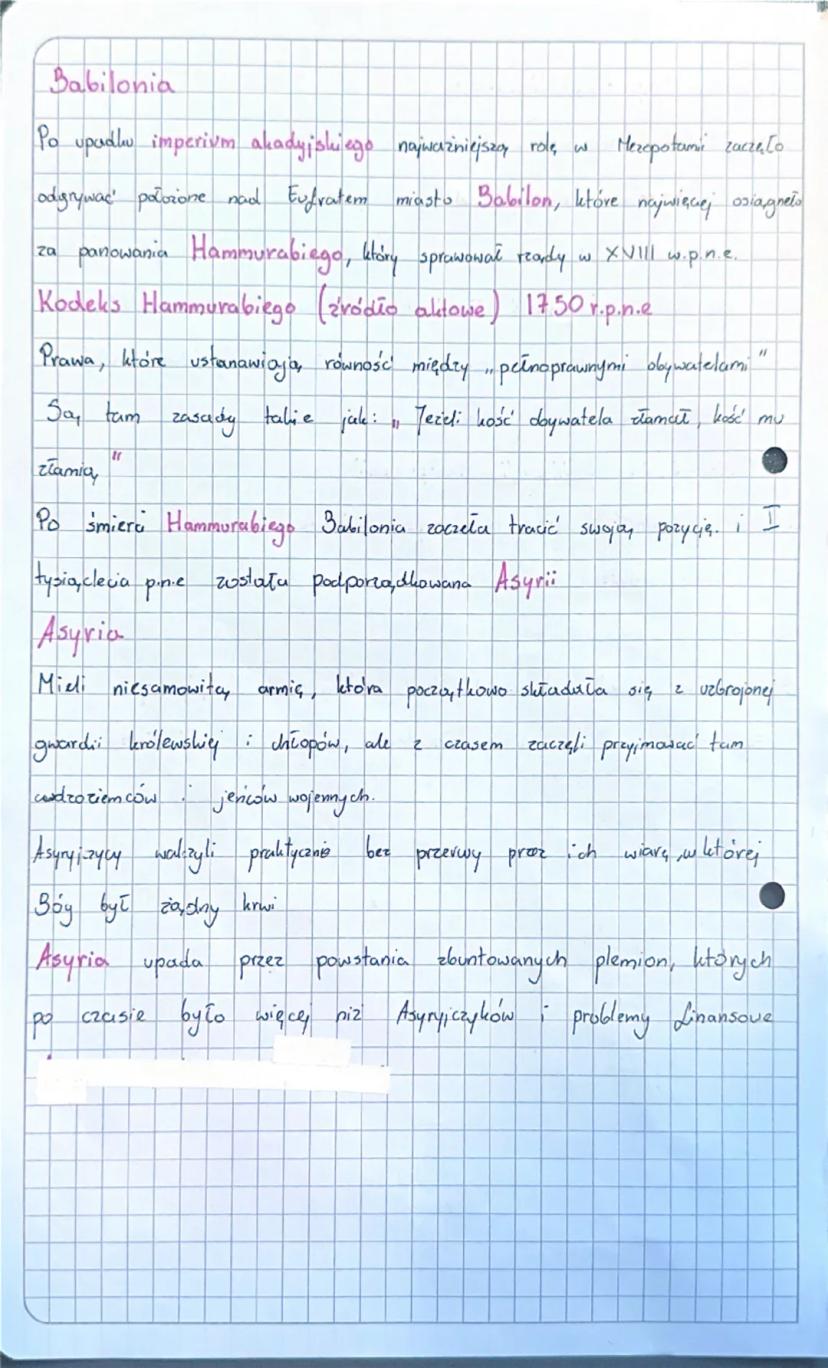 Babilonia
Po upadku imperium akadyjskiego najważniejszą rolę w Mezopotamii zaczęło
odgrywać położone nad Eufratem miasto Babilon, które najwięcej osiągnęło
za panowania Hammurabiego, który sprawował rządy w XVIII w.p.n.e.
Kodeks Hammurabiego (źródło aktowe) 1750 r.p.n.e
Prawa, które ustanawiają równość między „pełnoprawnymi obywatelami"
Są tam zasady takie jak: „Jeżeli kość obywatela złamał, kość mu
złamią"
Po śmierci Hammurabiego Babilonia zaczęła tracić swoją pozycję. i I
tysiąclecia p.n.e została podporządkowana Asyrii
Asyria
Mieli niesamowitą armię, która początkowo składała się z uzbrojonej
gwardii królewskiej i chłopów, ale z czasem zaczęli przyjmować tam
cudzoziemców i jeńców wojennych.
Asyryjczycy walczyli praktycznie bez przerwy przez ich wiarę, w której
Bóg był żądny krwi
Asyria upada przez powstania zbuntowanych plemion, których
po czasie było więcej niż Asyryjczyków i problemy finansowe